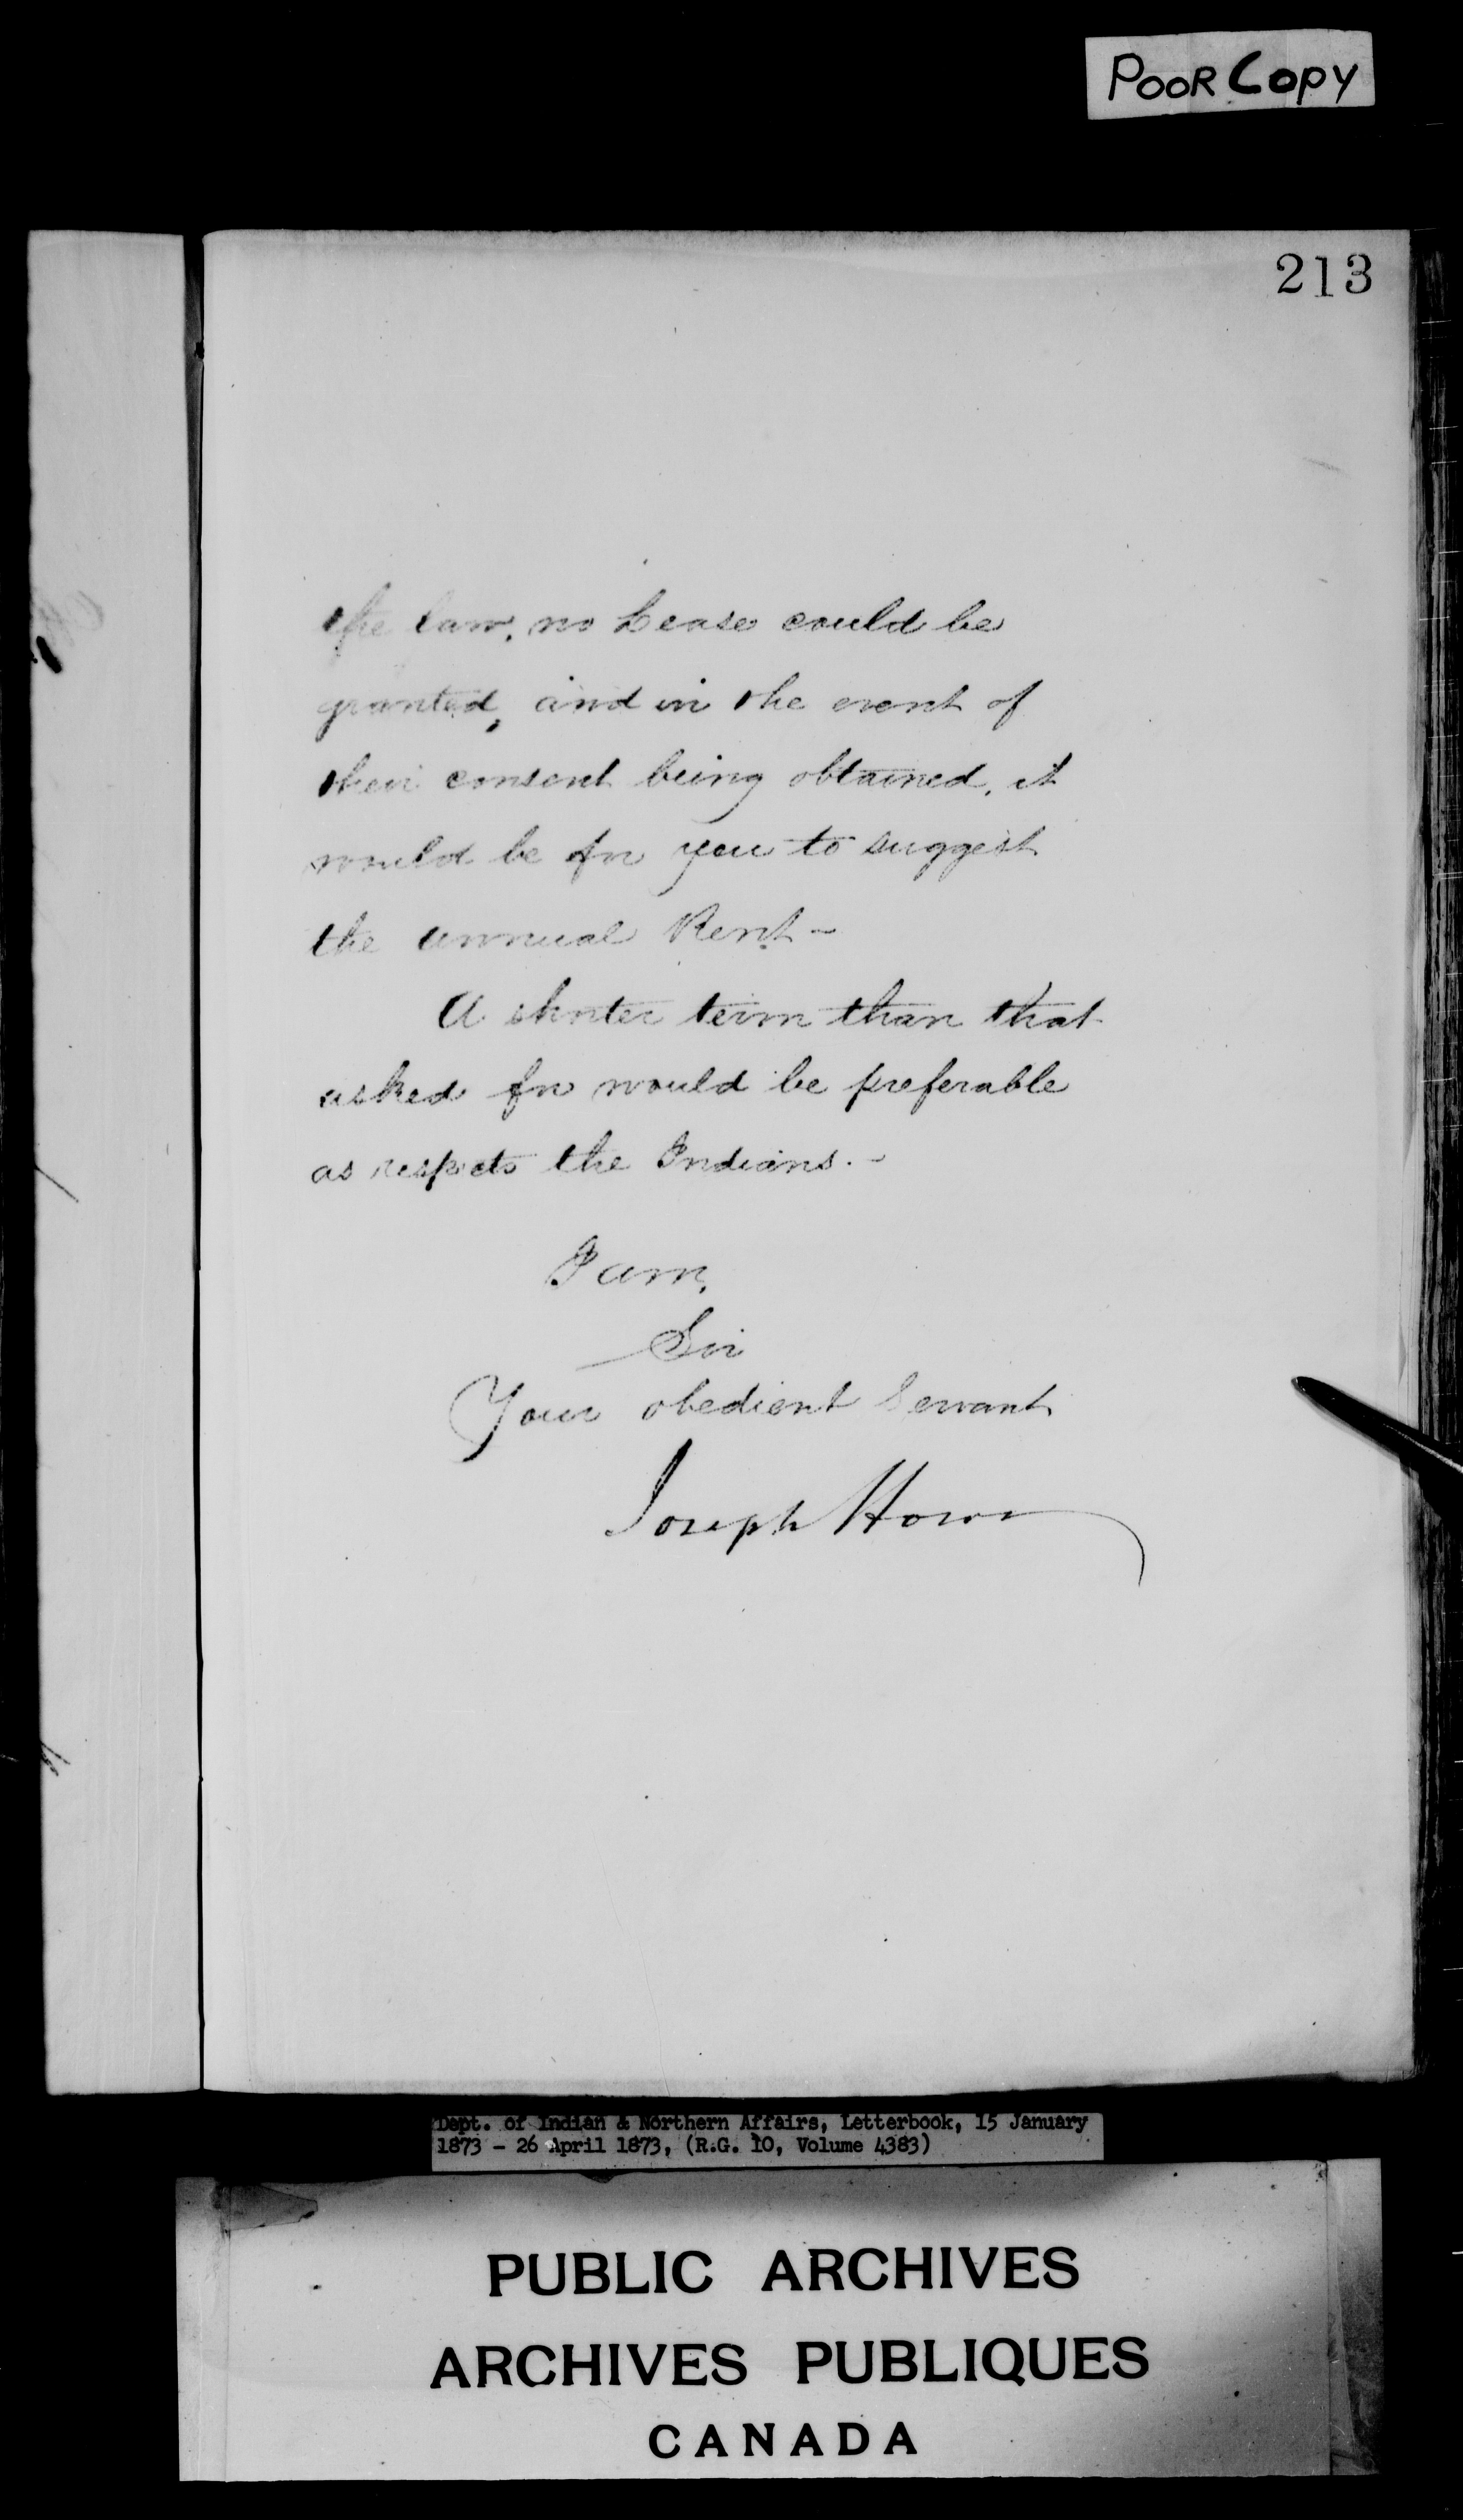 POOR COPY
213
the law, no Lease could be
granted, and in the event of
their consent being obtained, it
would be for you to suggest
the annual Rent -
A shorter term than that
asked for would be preferable
as respects the Indians. -
I am,
Sir
Your obedient Servant
Joseph Howe
Dept. of Indian & Northern Affairs, Letterbook, 15 January
1873 - 26 April 1873, (R.G. 10, Volume 4383)
PUBLIC ARCHIVES
ARCHIVES PUBLIQUES
CANADA